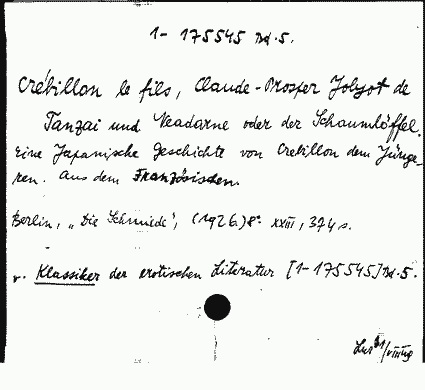 1-175545 Bd.5.
Crébillon le fils, Claude-Prosper Jolyot de
Tanzai und Neadarne oder der Schaumlöffel.
Eine Japanische Geschichte von Crebillon dem Jünge-
ren. Aus dem Französischen.
Berlin, „Die Schmiede", (1926.) 8° XXIII, 374 s.
v. Klassiker der erotischen Literatur [1-175545] Bd.5.